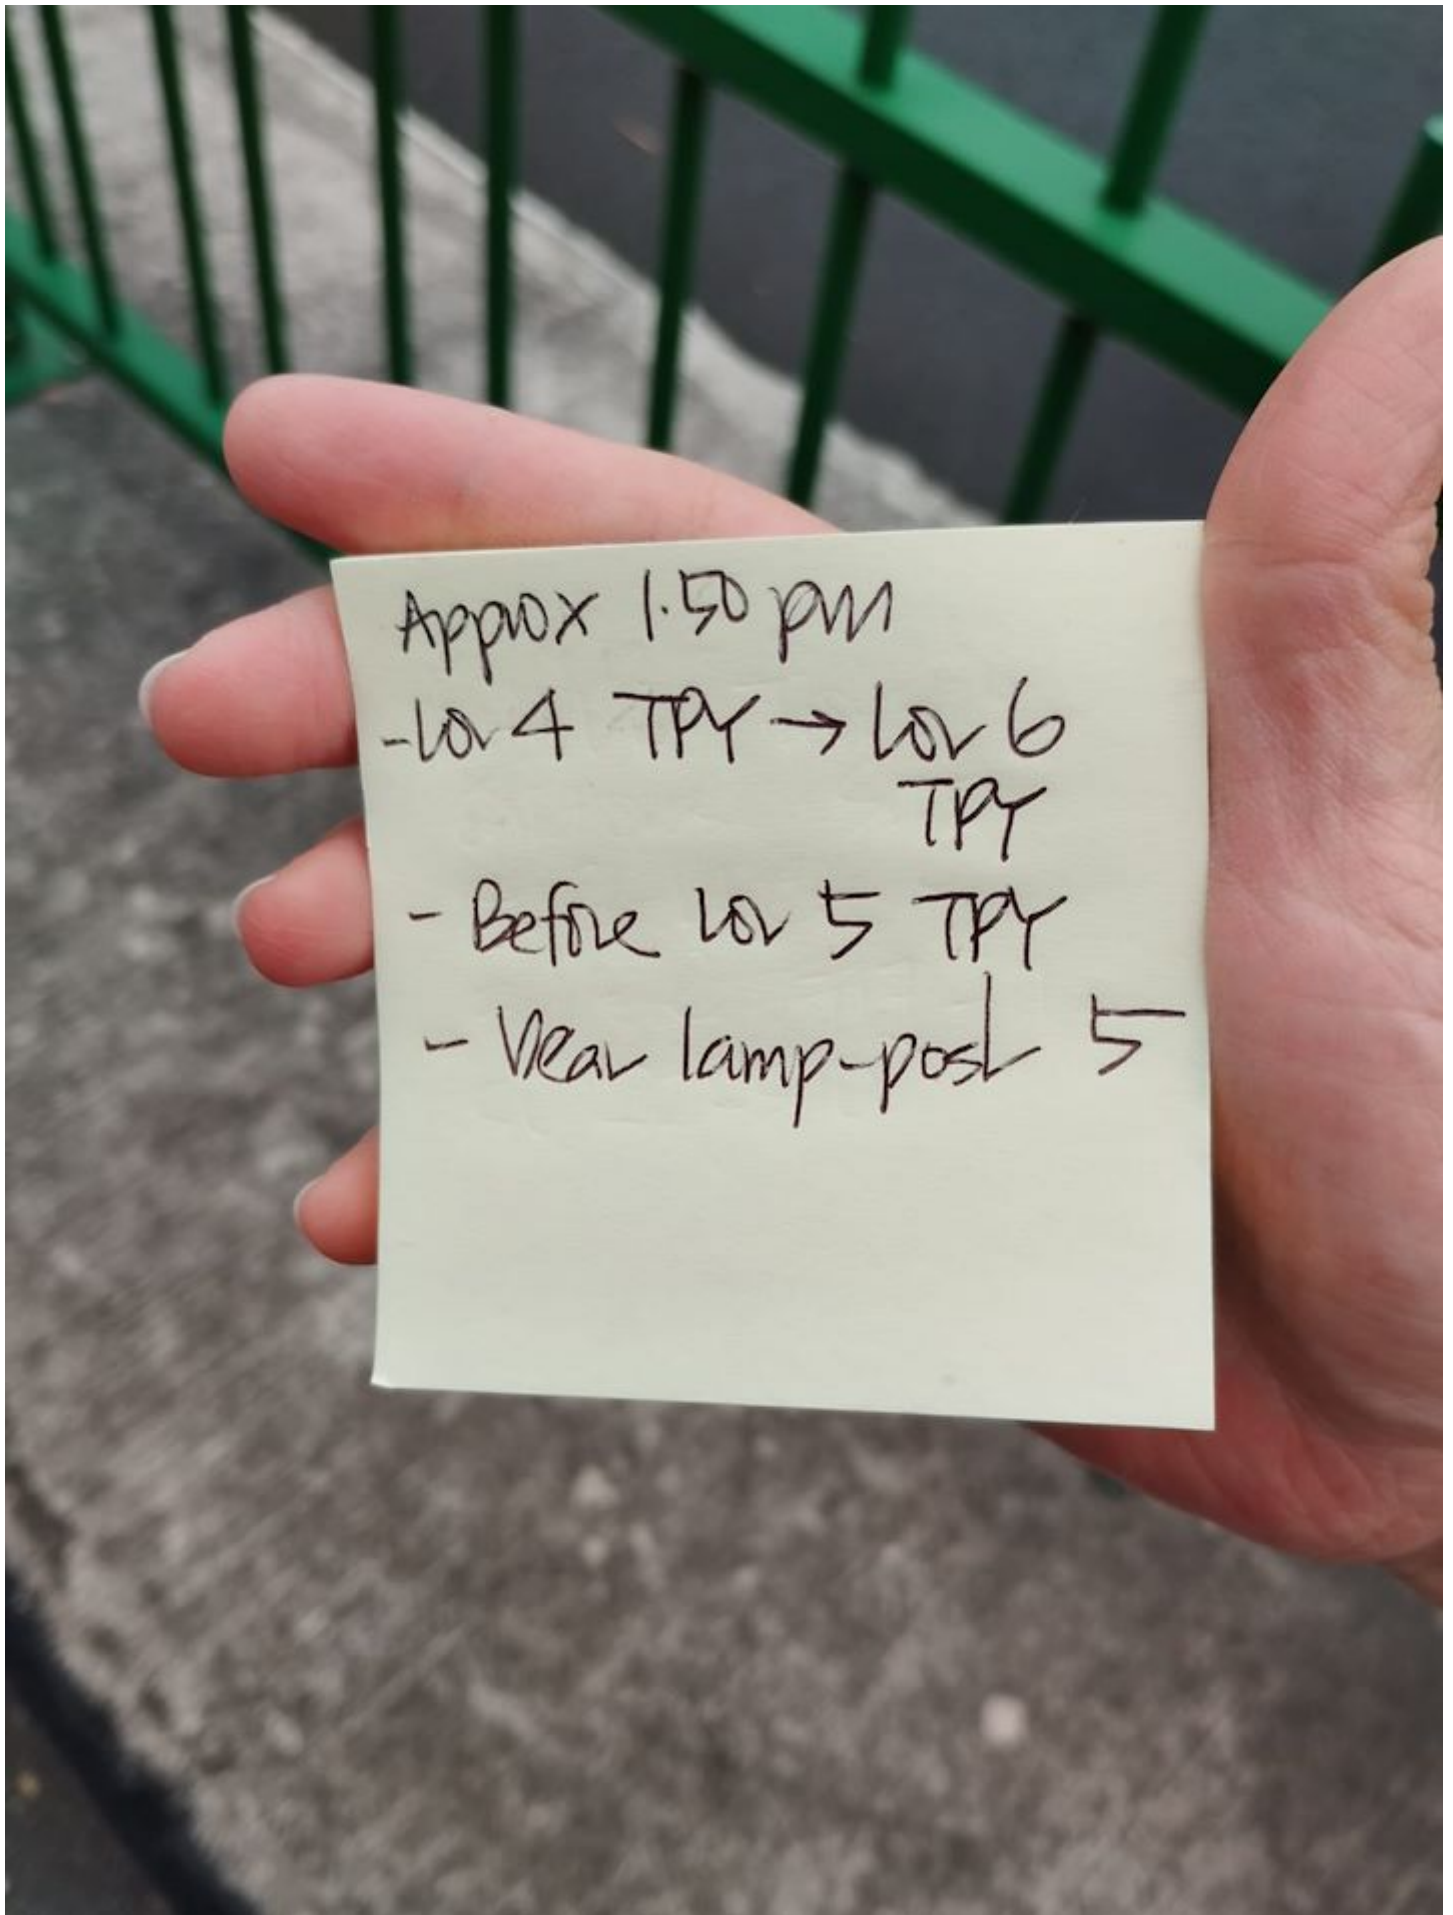 Approx 1.50 pm
- Lor 4 TPY → Lor 6
TPY
- Before Lor 5 TPY
- Near lamp-post 5